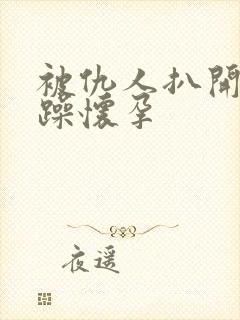 被仇人扒開
躁懷孕
夜遥